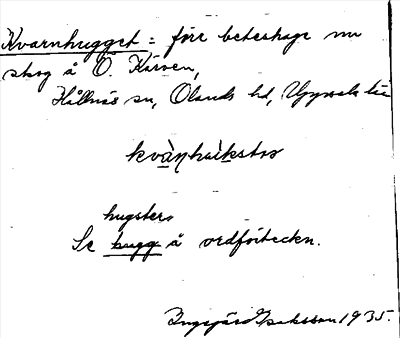 Kvarnhugget = förr beteshage nu
skog å Ö. Kärven,
Hållnäs sn, Olands hd, Uppsala län
kvàn̥haikstəs
hugster,
Se hugg å ordförteckn.
Ingegärd Isaksson 1935.